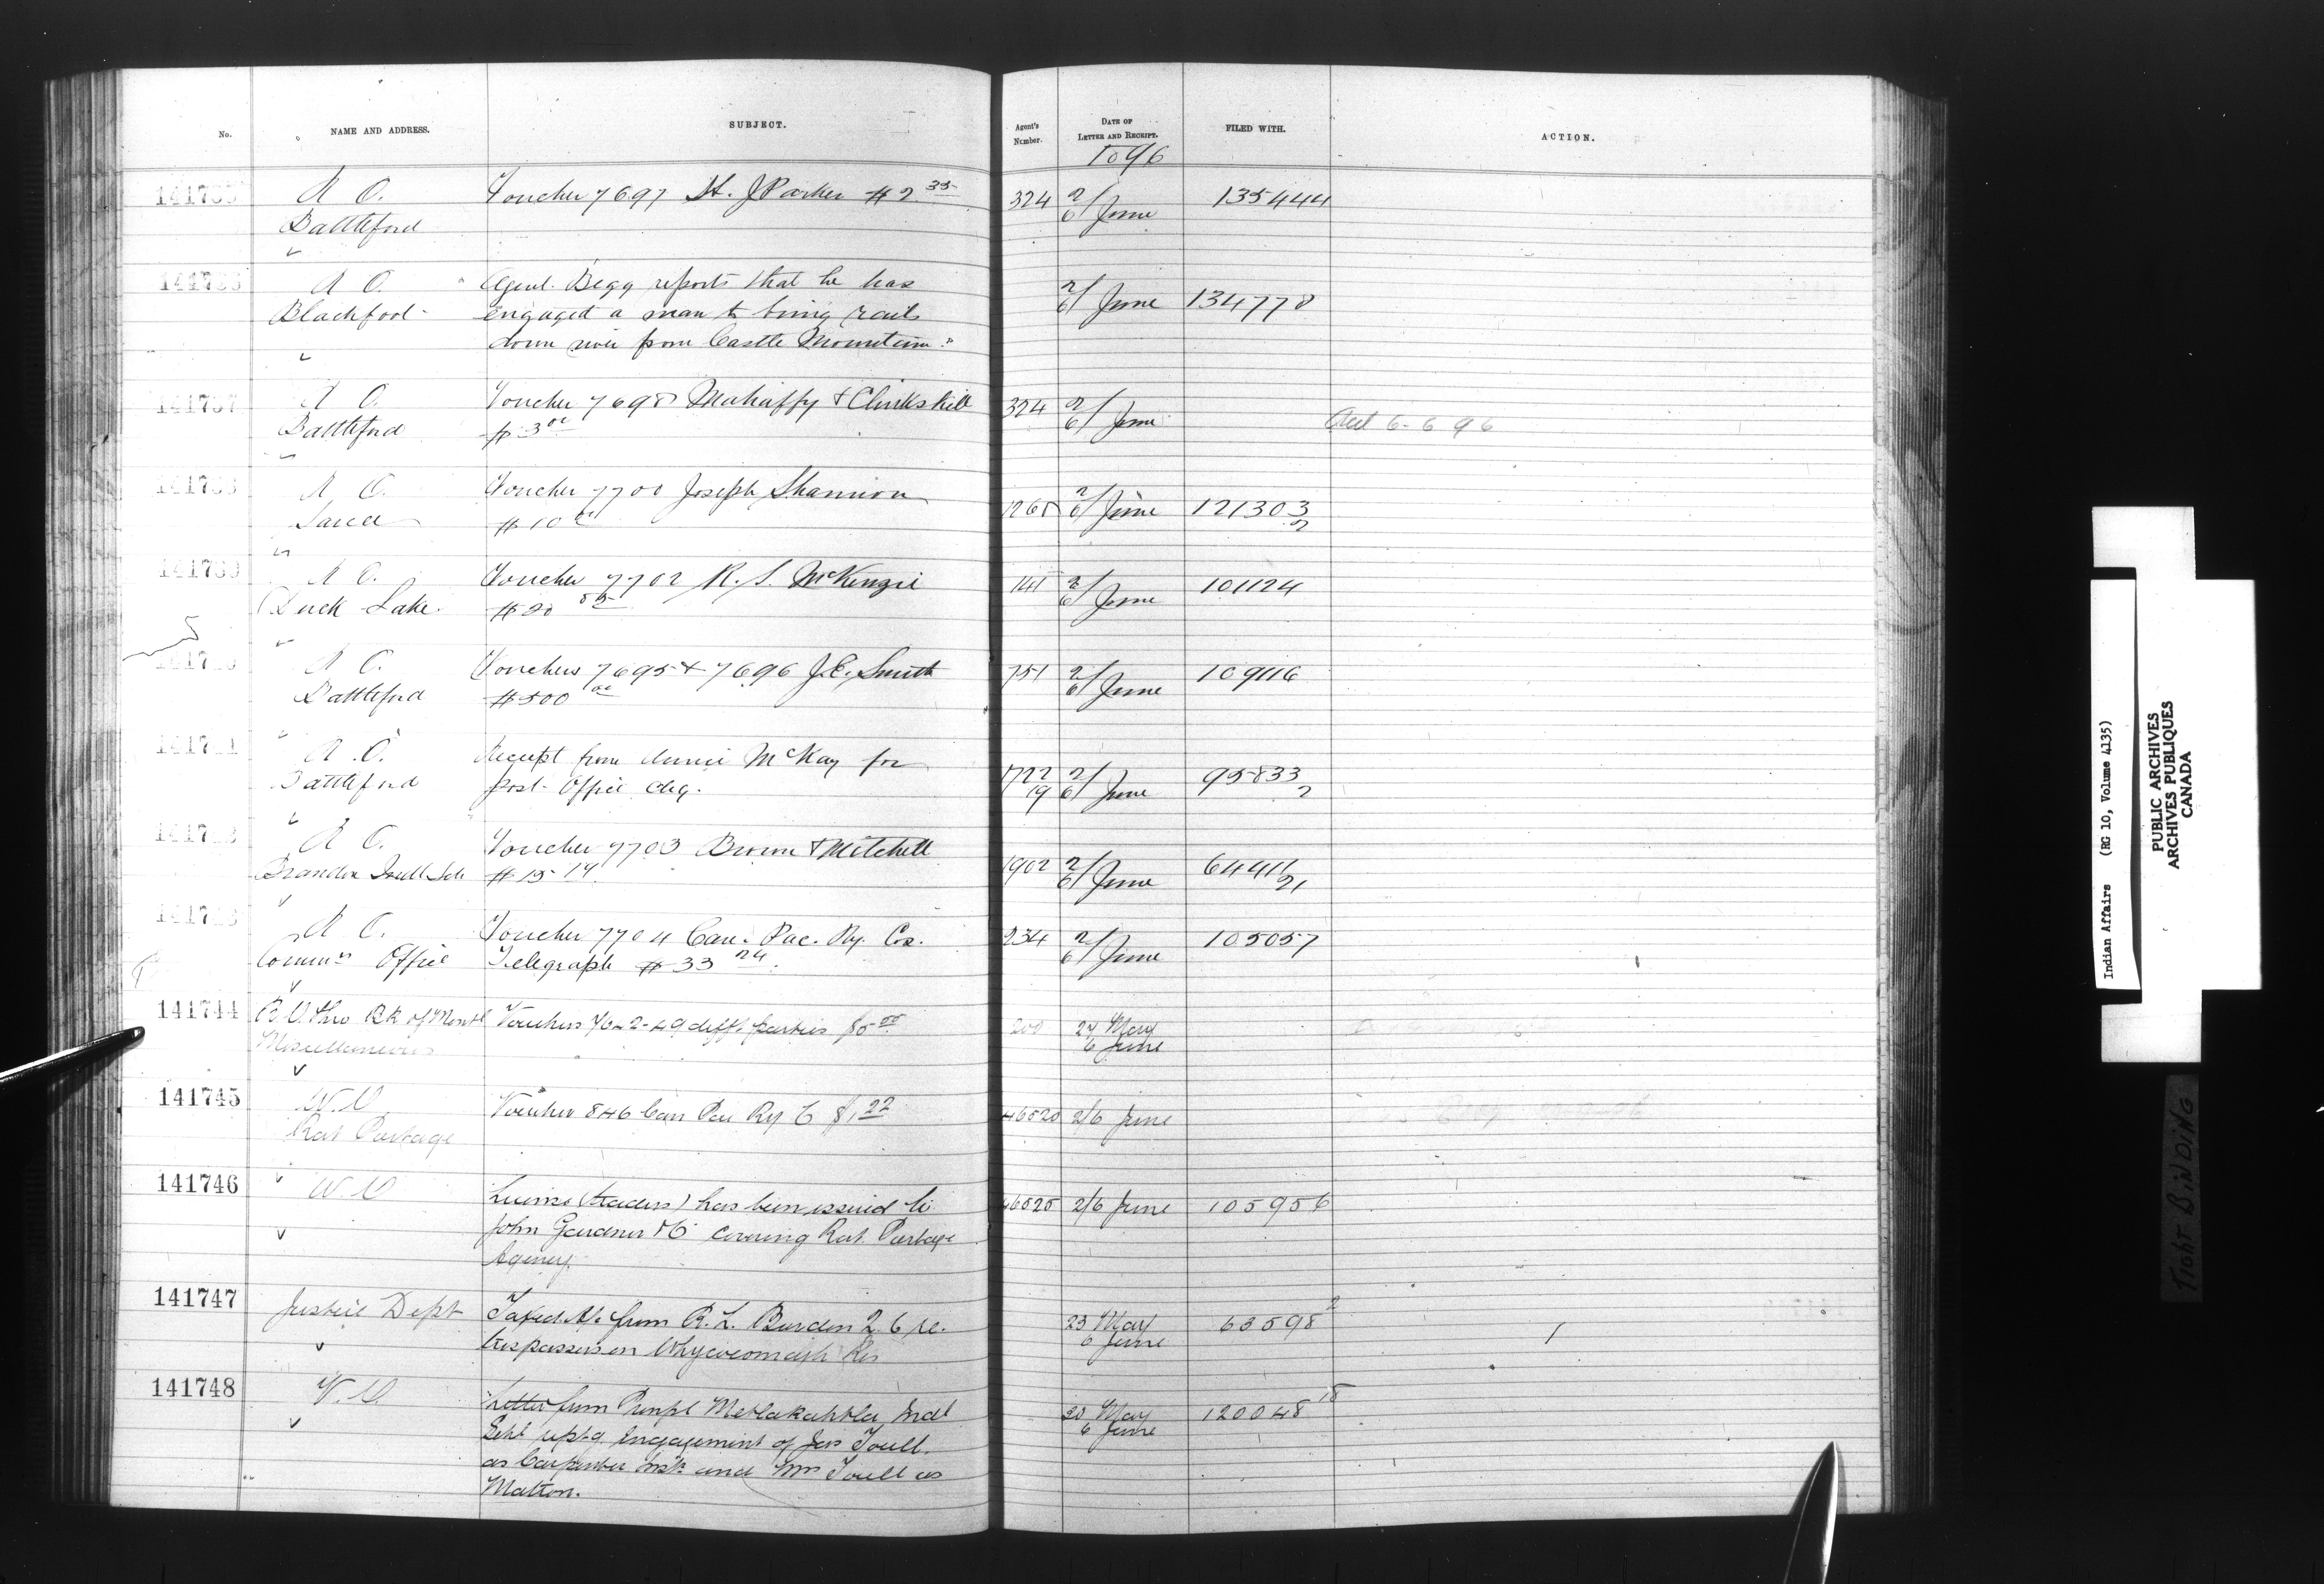 No. NAME AND ADDRESS. SUBJECT. Agent's Number. DATE OF LETTER AND RECEIPT. FILED WITH. ACTION.
1896
141735 R O. Voucher 7697 St. J Parker $2.35 324 2/6 June 135444
Battleford
141736 R O. Agent Begg reports that he has 2/6 June 134778
Blackfoot engaged a man to bring rails
down river from Castle Mountain.
141737 R O. Voucher 7698 Mahaffy & Clinkskill 324 2/6 June
Battleford $3 00 6-6 96
141738 R O. Voucher 7700 Joseph Shannon 1268 2/6 June 121303
Sarcee $10 2
141739 R O. Voucher 7702 R. S. McKenzie 141 2/6 June 101124
Duck Lake $20
R O. Vouchers 7695 & 7696 J.C. Smith 751 2/6 June 109116
Battleford $500 00
141741 R.O. Receipt from Annie McKay for 1722 2/6 June 95833
Battleford post-office chq. 19 2
R O. Voucher 7703 Brown & Mitchell 1902 2/6 June 64411
Brandon Indl Sch $15 14 21
R O. Voucher 7704 Can. Pac. Ry. Cos. 234 2/6 June 105057
Commrs Office Telegraph $33 24
141744 R.O. thro BK of Montl Vouchers 7642-49 difft parties 200 27 May
Miscellaneous 6 June
141745 W.O Voucher 846 Can Pac Ry C $1 22 46520 2/6 June
Rat Portage
141746 W.O License (traders) has been issued to 46525 2/6 June 105956
John Gardner & Co covering Rat Portage
Agency.
141747 Justice Dept Taxed a/c from R. L. Borden Q C re. 23 May 63598 2
trespassers on Whycocomagh Res 6 June
141748 W.O. Letter from Prinpl Metlakahtla Indl 30 May 120048 18
Schl reptg engagement of Jas Youll 6 June
as Carpenter instr and Mrs Youll as
Matron.
Indian Affairs (RG 10, Volume 4135)
PUBLIC ARCHIVES
ARCHIVES PUBLIQUES
CANADA
TIGHT BINDING